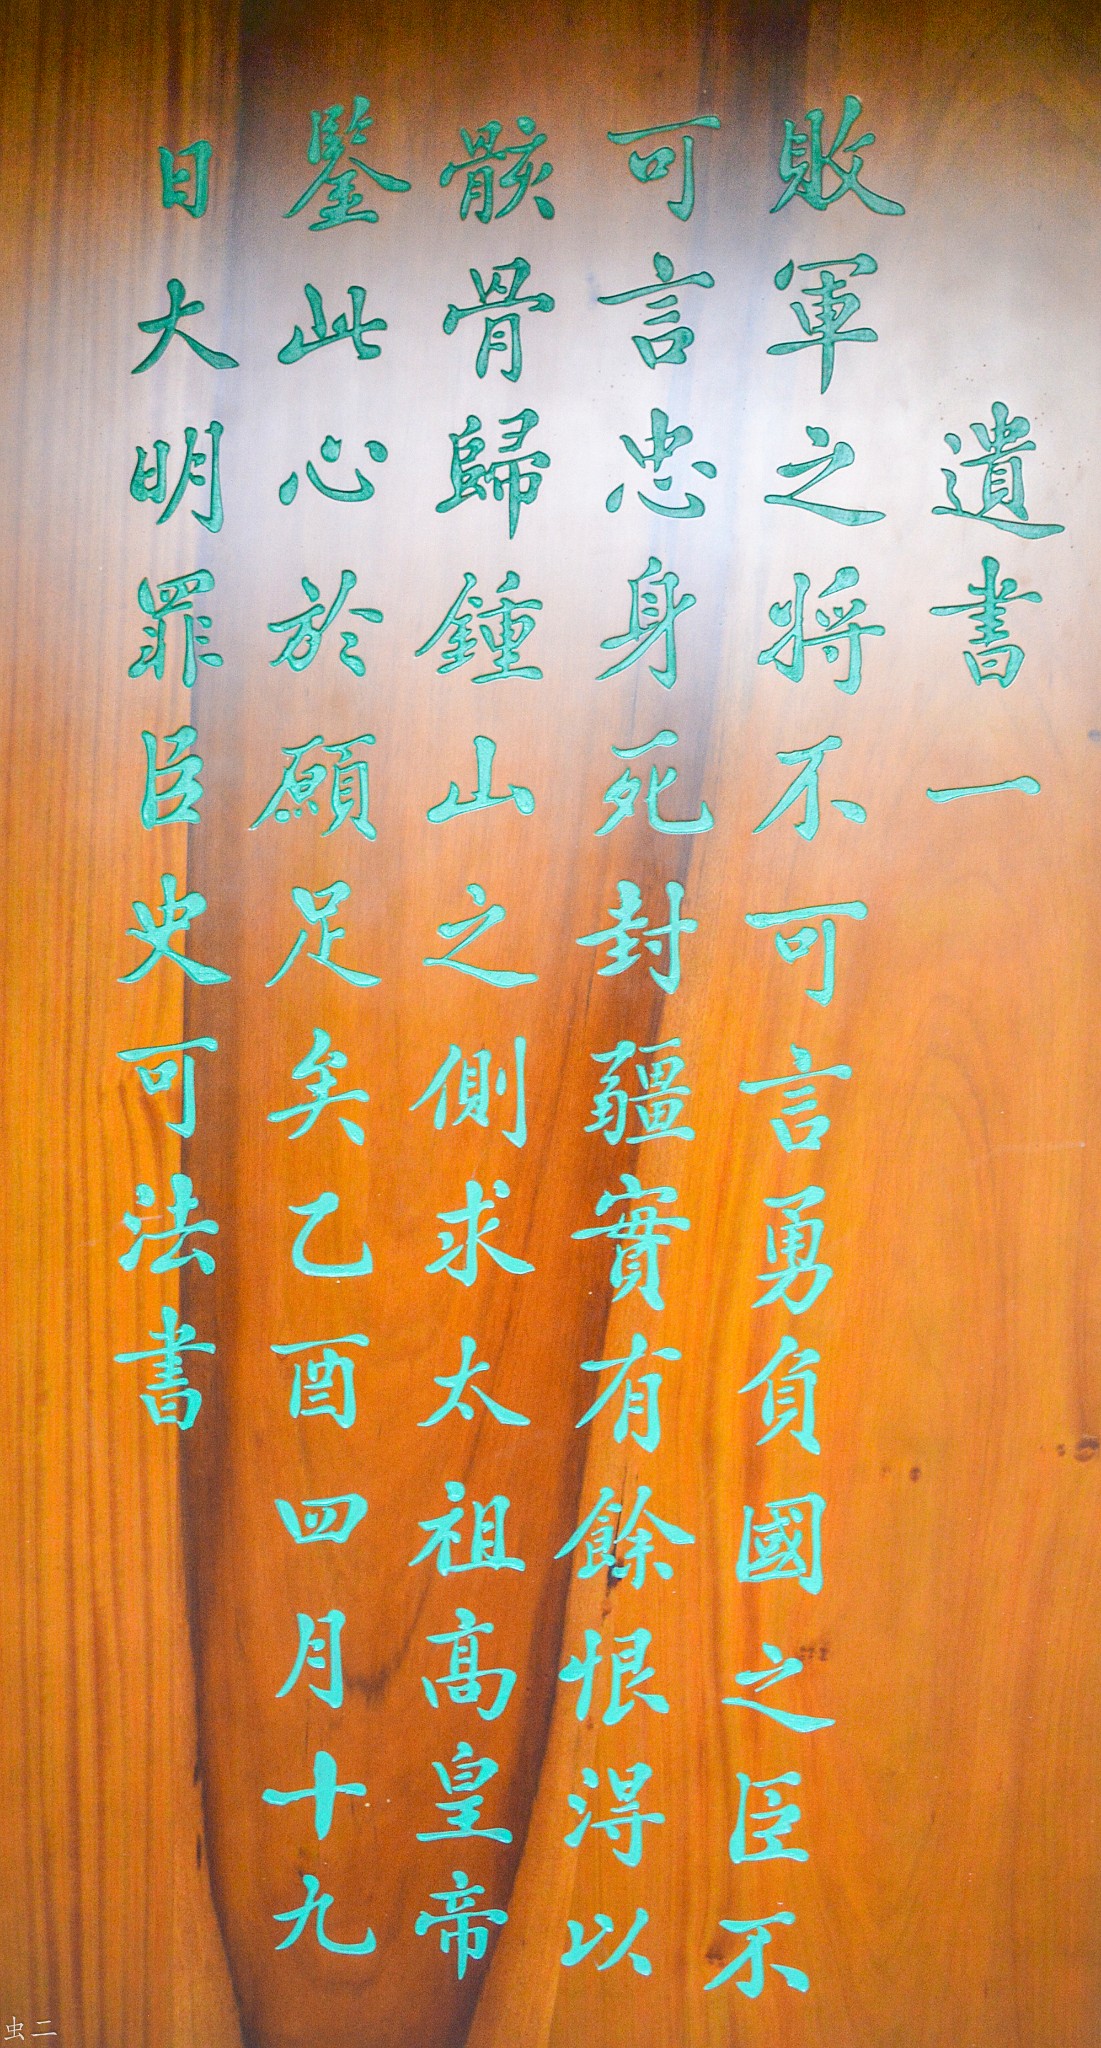 遺書一
敗軍之將不可言勇負國之臣不
可言忠身死封疆實有餘恨得以
骸骨歸鍾山之側求太祖高皇帝
鑒此心於願足矣乙酉四月十九
日大明罪臣史可法書
虫二